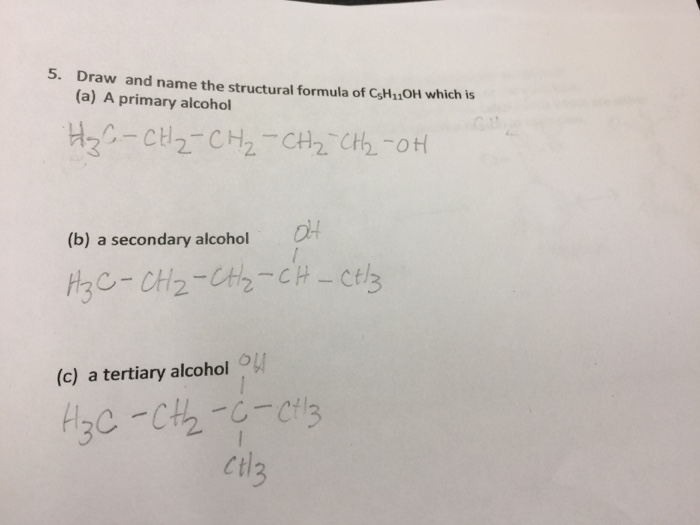 5. Draw and name the structural formula of C₅H₁₁OH which is
(a) A primary alcohol
H₃C-CH₂-CH₂-CH₂-CH₂-OH
(b) a secondary alcohol
OH
H₃C-CH₂-CH₂-CH-CH₃
(c) a tertiary alcohol
OH
H₃C-CH₂-C-CH₃
CH₃